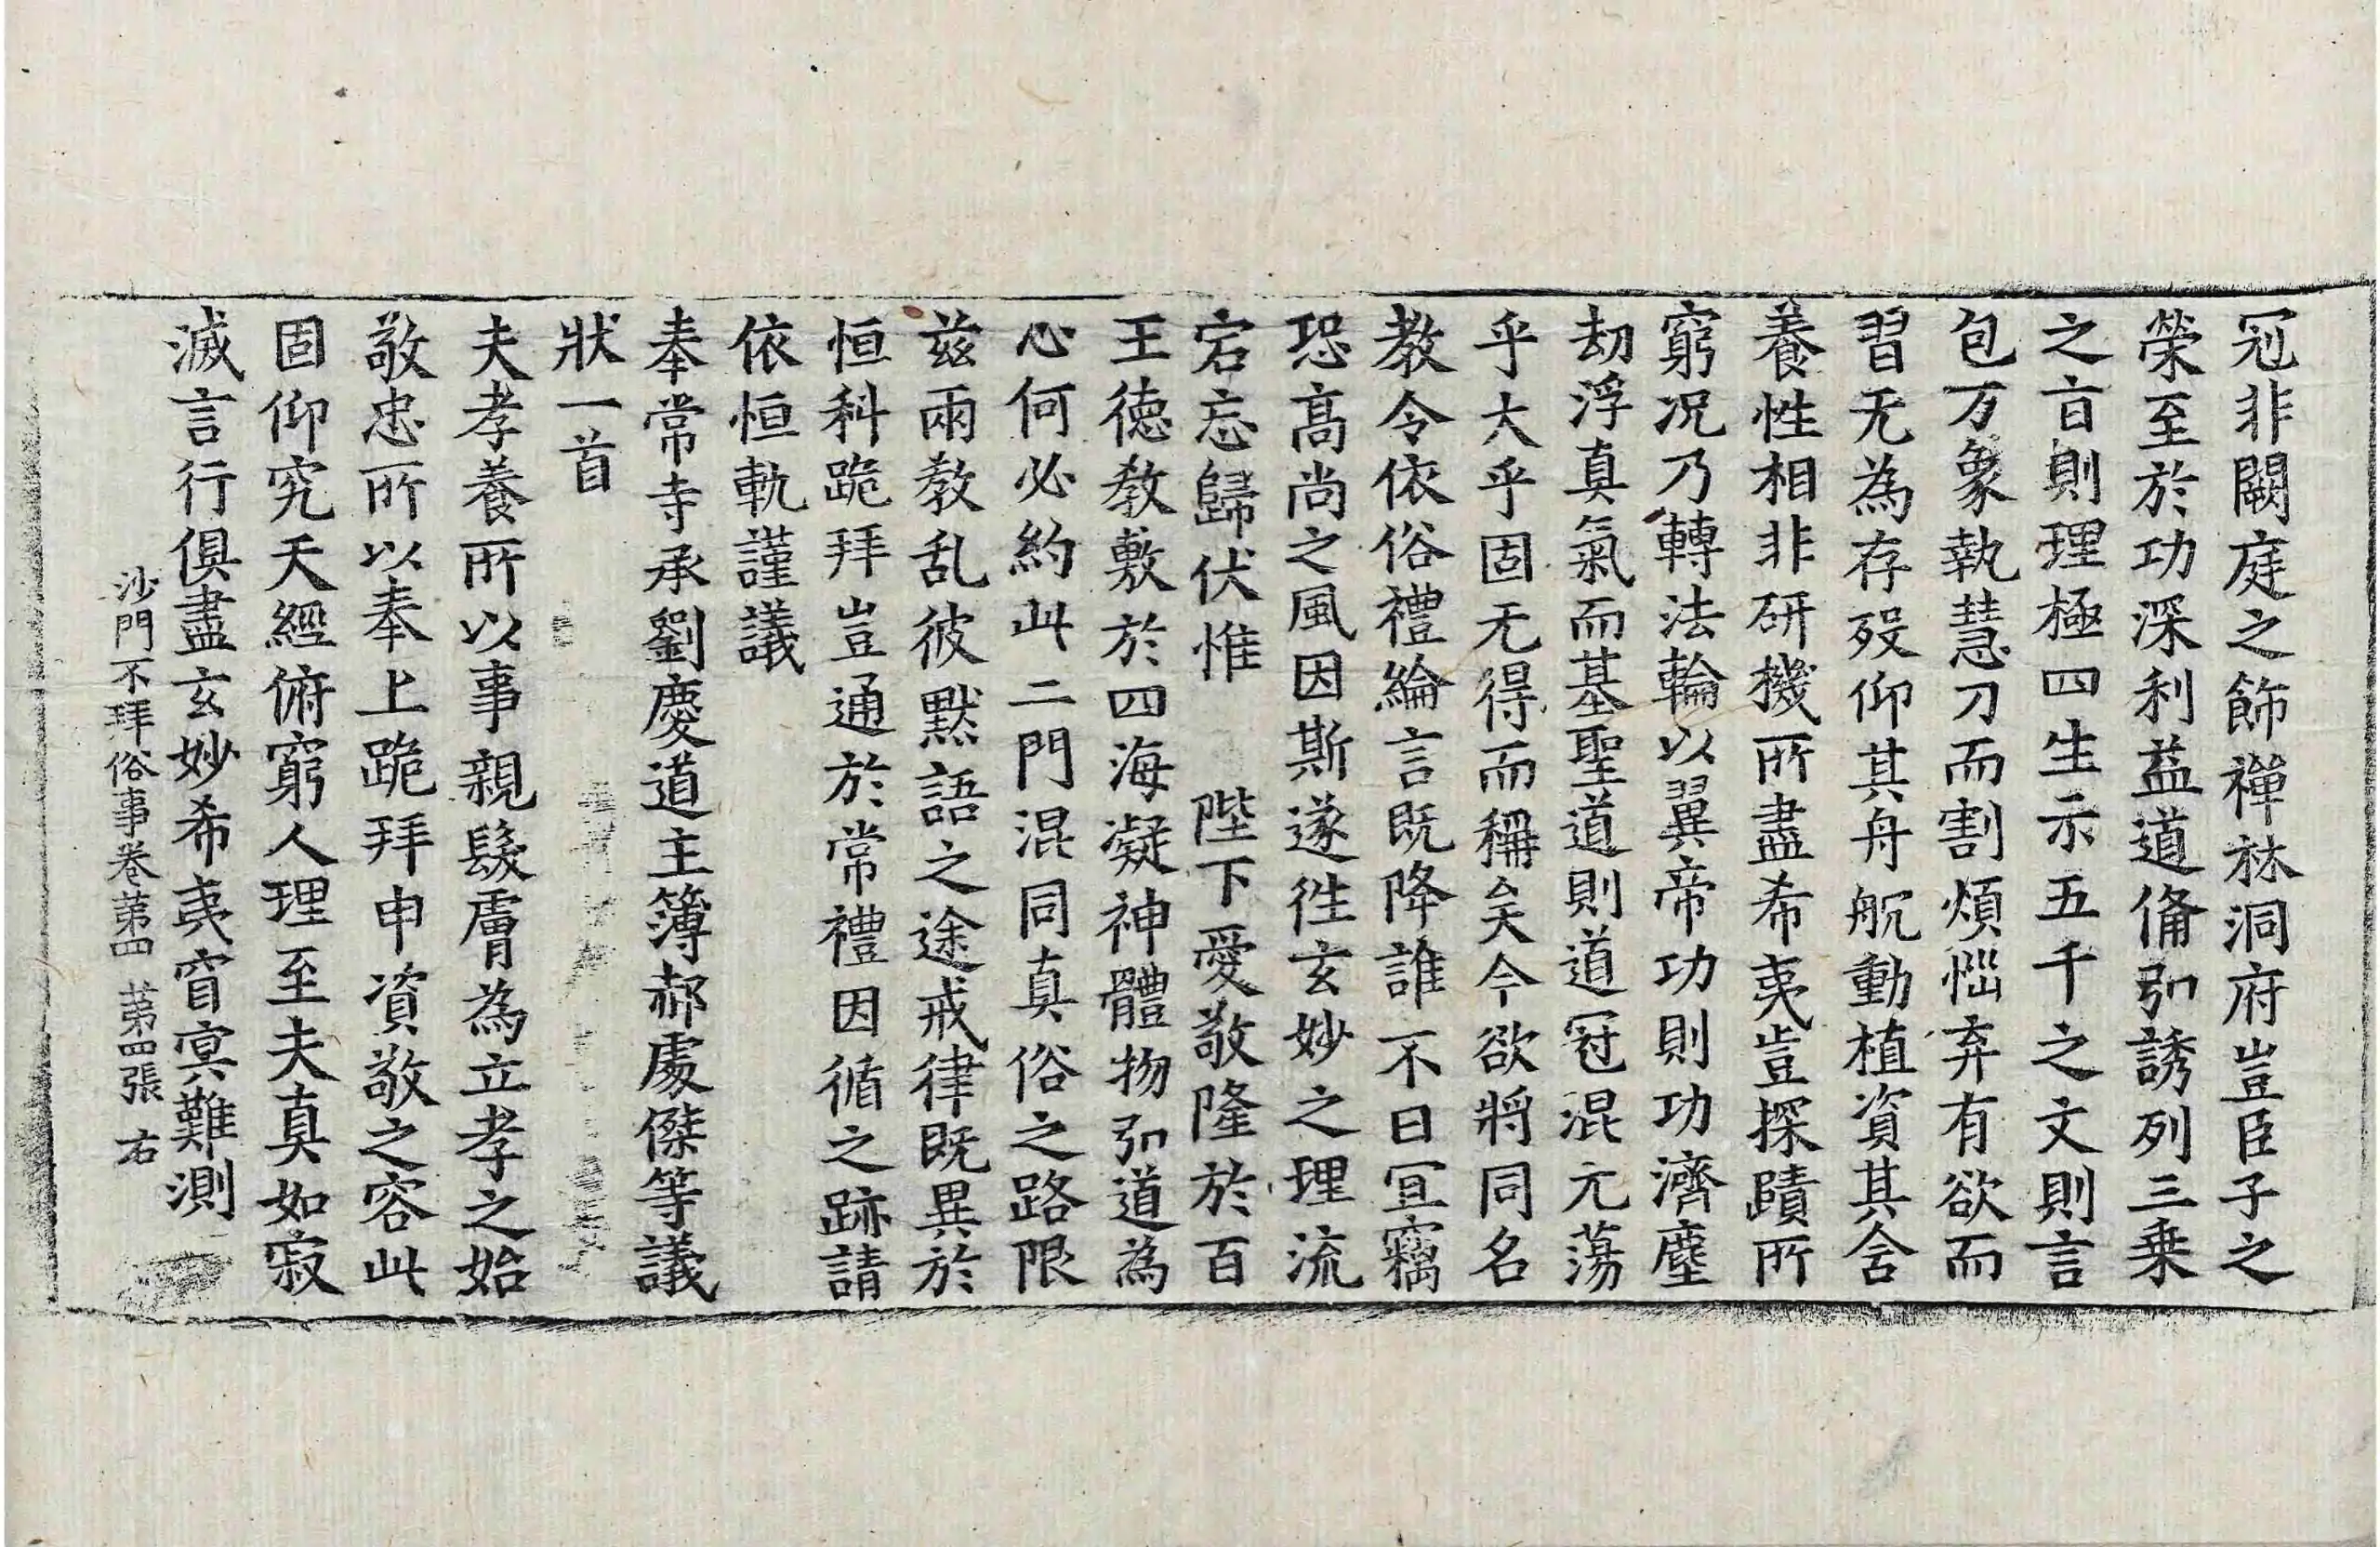 冠非闕庭之飾禅林洞府豈臣子之
榮至於功深利益道俻引誘列三乗
之㫖則理極四生示五千之文則言
包万象執慧刀而割煩惱弃有欲而
習无為存歿仰其舟航動植資其含
養性相非研機所盡希夷豈探賾所
窮况乃轉法輪以翼帝功則功濟塵
劫浮真氣而基聖道則道冠混元蕩
乎大乎固无得而稱矣今欲將同名
教令依俗禮綸言既降誰不曰宜竊
恐髙尚之風因斯遂徃玄妙之理流
宕忘歸伏惟　陛下愛敬隆於百
王德教敷於四海凝神體物弘道為
心何必約此二門混同真俗之路限
兹兩教乱彼黙語之途戒律既異於
恒科跪拜豈通於常禮因循之跡請
依恒軌謹議
奉常寺承劉慶道主簿郝處傑等議
狀一首
夫孝養所以事親髮膚為立孝之始
敬忠所以奉上跪拜申資敬之容此
固仰究天經俯窮人理至夫真如寂
滅言行俱盡玄妙希夷窅寞難測
沙門不拜俗事卷苐四　苐四張　右